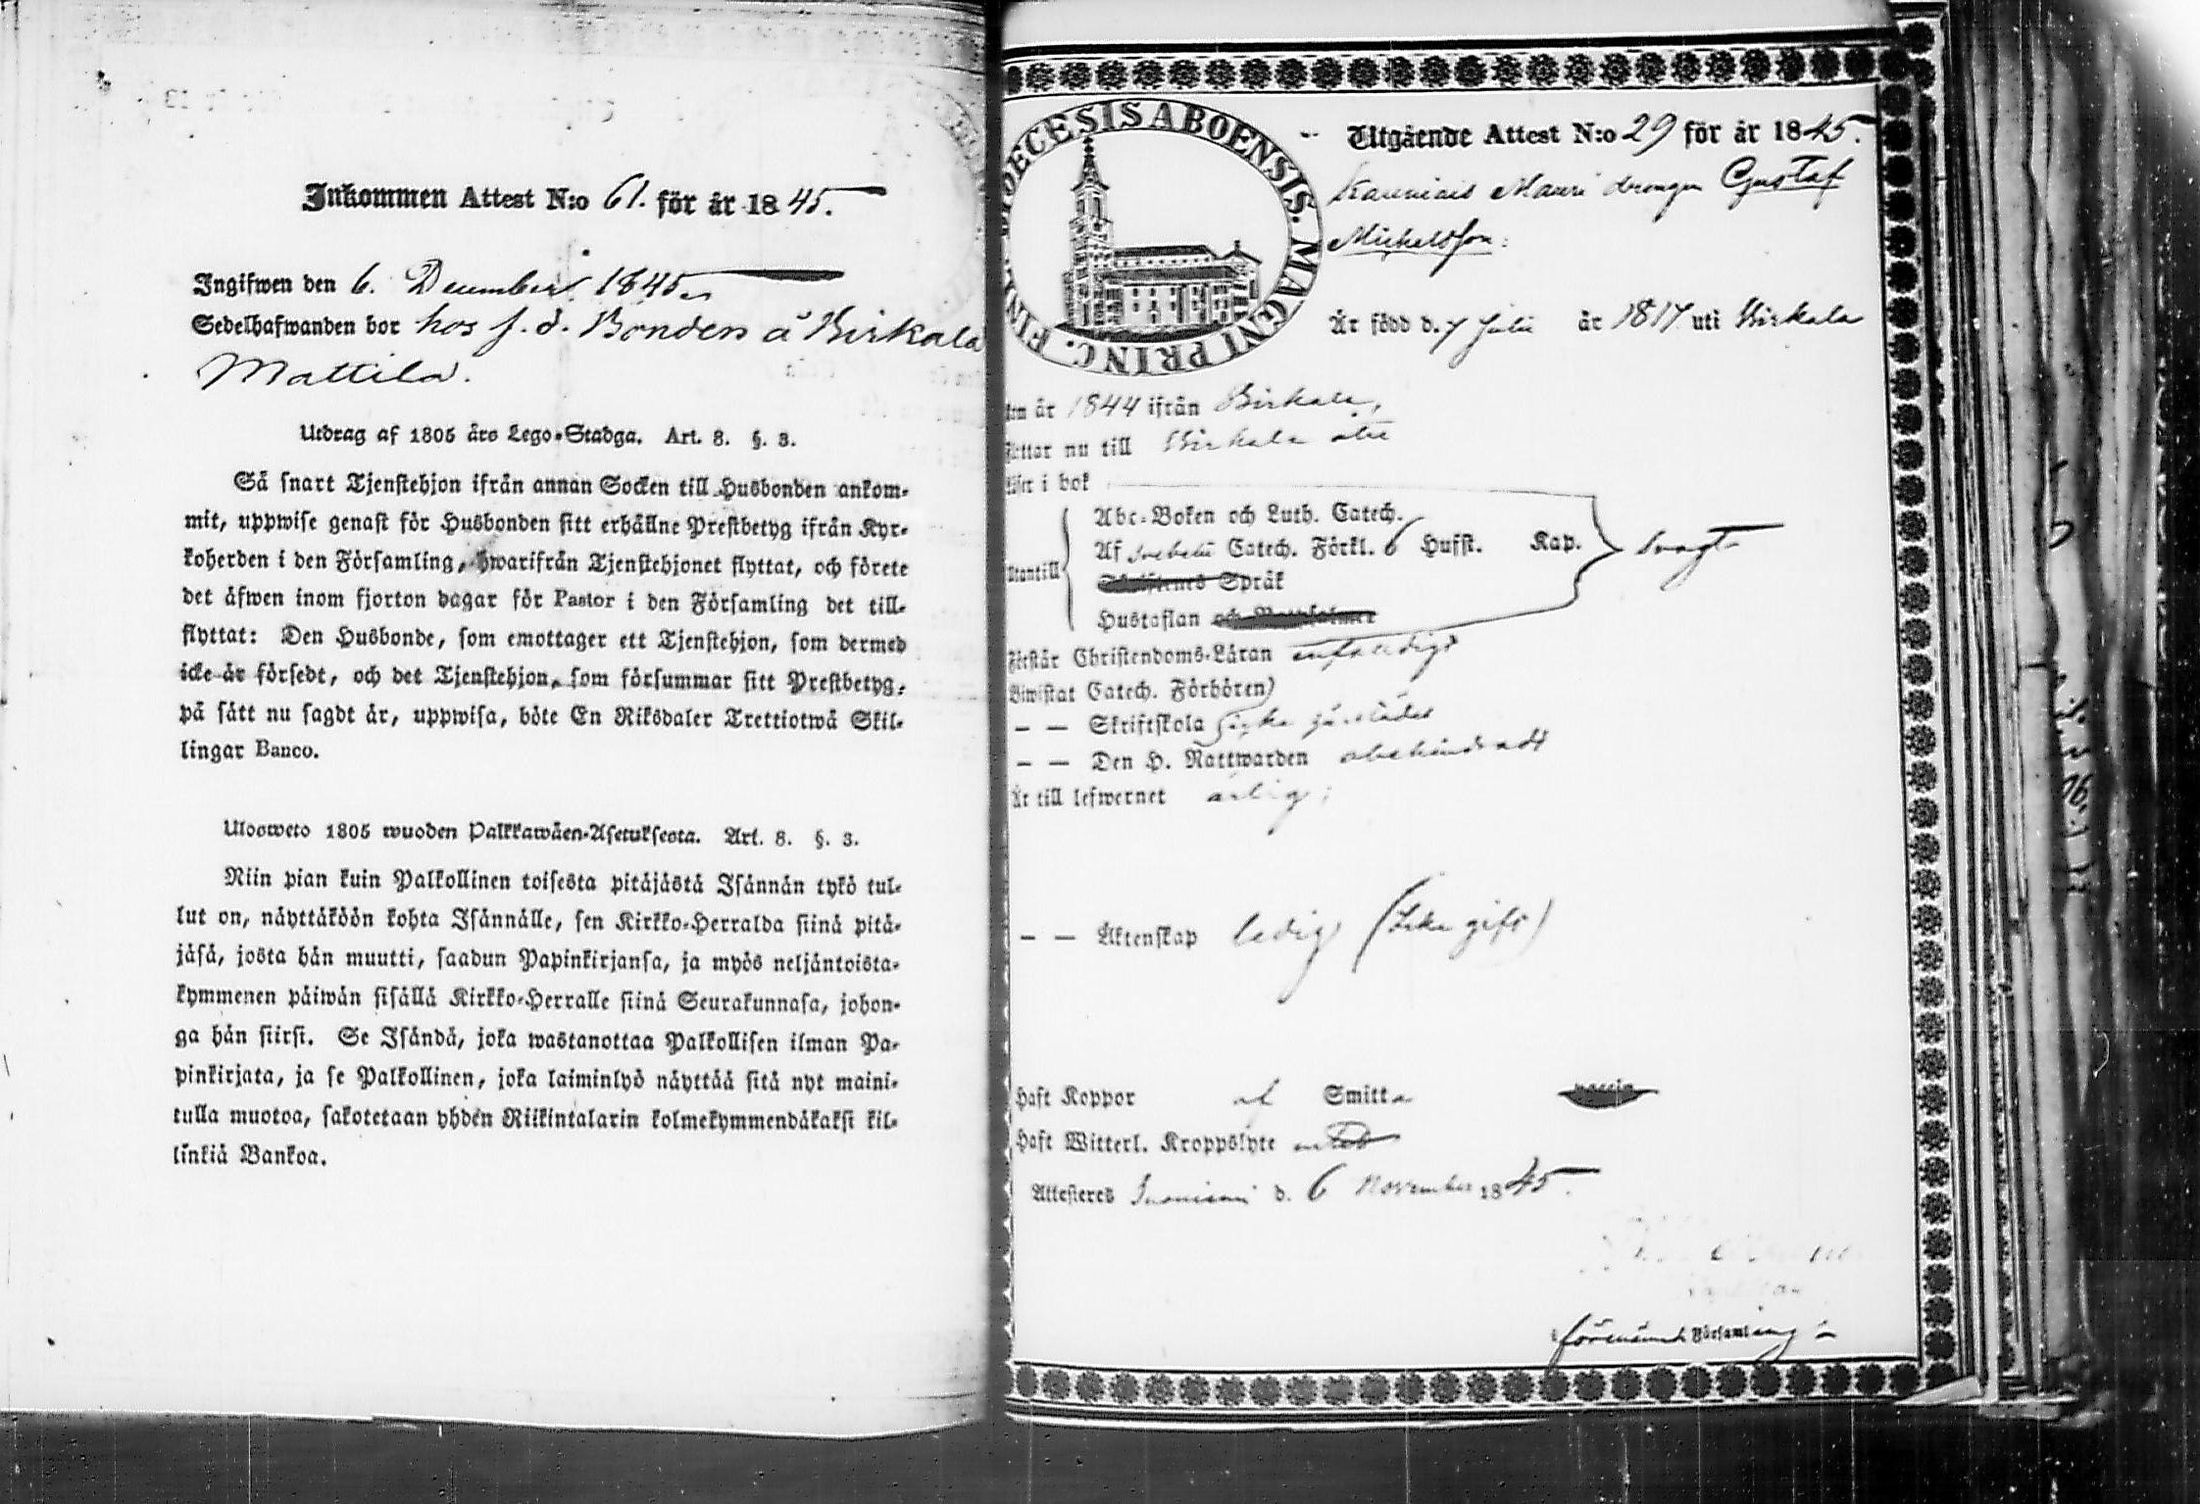 Inkommen Attest N:o 61. för år 1845.
Ingifwen den 6. December 1845.
Sedelhafwanden bor hos f. d. Bonden å Birkala
Mattila.
Utdrag af 1805 års Lego-Stadga. Art. 8. §. 3.
Så snart Tjenstehjon ifrån annan Socken till Husbonden ankom-
mit, uppwise genast för Husbonden sitt erhållne Prestbetyg ifrån Kyr-
koherden i den Församling, hwarifrån Tjenstehjonet flyttat, och förete
det äfwen inom fjorton dagar för Pastor i den Församling det till-
flyttat: Den Husbonde, som emottager ett Tjenstehjon, som dermed
icke är försedt, och det Tjenstehjon, som försummar sitt Prestbetyg,
på sätt nu sagdt är, uppwisa, böte En Riksdaler Trettiotwå Skil-
lingar Banco.
Ulosweto 1805 wuoden Palkkawäen-Asetuksesta. Art. 8. §. 3.
Niin pian kuin Palkollinen toisesta pitäjästä Isännän tykö tul-
lut on, näyttäköön kohta Isännälle, sen Kirkko-Herralda siinä pitä-
jäsä, josta hän muutti, saadun Papinkirjansa, ja myös neljäntoista-
kymmenen päiwän sisällä Kirkko-Herralle siinä Seurakunnasa, johon-
ga hän siirsi. Se Isändä, joka wastanottaa Palkollisen ilman Pa-
pinkirjata, ja se Palkollinen, joka laiminlyö näyttää sitä nyt maini-
tulla muotoa, sakotetaan yhden Riikintalarin kolmekymmendäkaksi kil-
linkiä Bankoa.
DIOECESIS ABOENSIS. MAGNI PRINC. FINL.
Utgående Attest N:o 29 för år 1845.
Mauri drengen Gustaf
Michelsson
Är född d. 7 Julii år 1817 uti Birkala
år 1844 ifrån Birkala,
nu till Birkala åter
i bok
Abc-Boken och Luth. Catech.
Af Svebelii Catech. Förkl. 6 Hufst. Kap. svagt
Utantill
Språk
Hustaflan
Förstår Christendoms-Läran enfaldigt
Biwistat Catech. Förhören
— — Skriftskola
— — Den H. Nattwarden obehindradt
Är till lefwernet ärlig;
— — Äktenskap ledig (Icke gift)
Haft Koppor af Smitta
Haft Witterl. Kroppslyte
Attesteres d. 6 November 1845.
förenämnda Församling